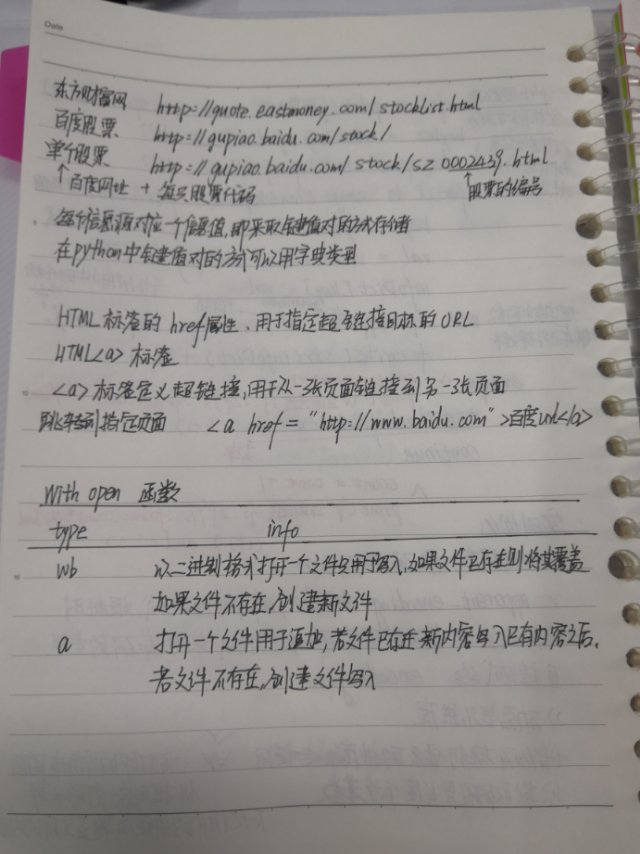 Date
东方财富网 http://quote.eastmoney.com/stocklist.html
百度股票 http://gupiao.baidu.com/stock/
单个股票 http://gupiao.baidu.com/stock/sz0002439.html
↑百度网址 + 每只股票代码 ↑股票的编号
每个信息源对应一个信息值,即采取键值对的方式存储
在python中键值对的方式可以用字典类型
HTML标签的href属性,用于指定超链接目标的URL
HTML<a>标签
<a>标签定义超链接,用于从一张页面链接到另一张页面
跳转到指定页面 <a href="http://www.baidu.com">百度url</a>
With open 函数
type info
wb 以二进制格式打开一个文件只用于写入,如果文件已存在则将其覆盖
如果文件不存在,创建新文件
a 打开一个文件用于追加,若文件已存在,新内容写入已有内容之后,
若文件不存在,创建文件写入